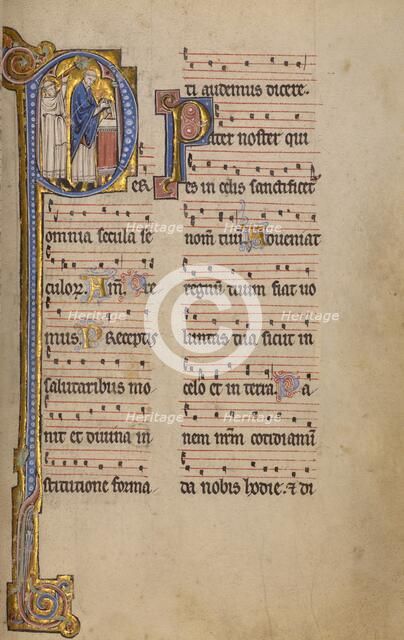 Per
omnia secula se
culoꝝ. Am̄. Ore
mus. Preceptis
salutaribus mo
niti et diuina in
stitutione forma
ti audemus dicere.
Pater noster qui
es in celis sanctificet᷑
nom̄ tuū. Adueniat
regnum tuum fiat uo
luntas tua sicut in
celo et in terra. Pa
nem n̄rm cotidianū
da nobis hodie. ⁊ di
Heritage
Heritage
Heritage
Heritage
Heritage
Heritage
Heritage
Heritage
Heritage